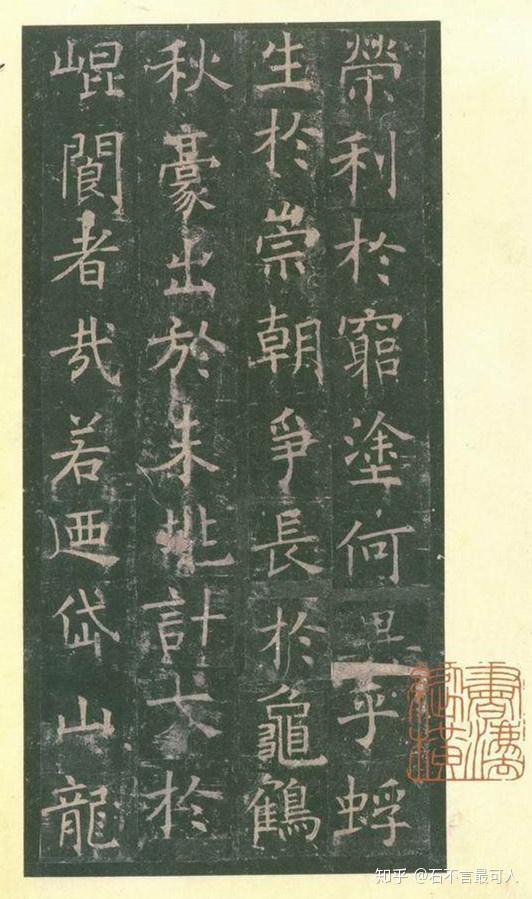 榮利於窮塗何異乎蜉
生於崇朝爭長於龜鶴
秋豪出於未兆計大於
崐閬者㢤若迺岱山龍
知乎 @石不言最可人